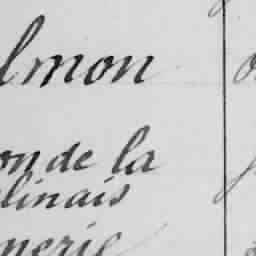 lmon
on de la
linais
nerie